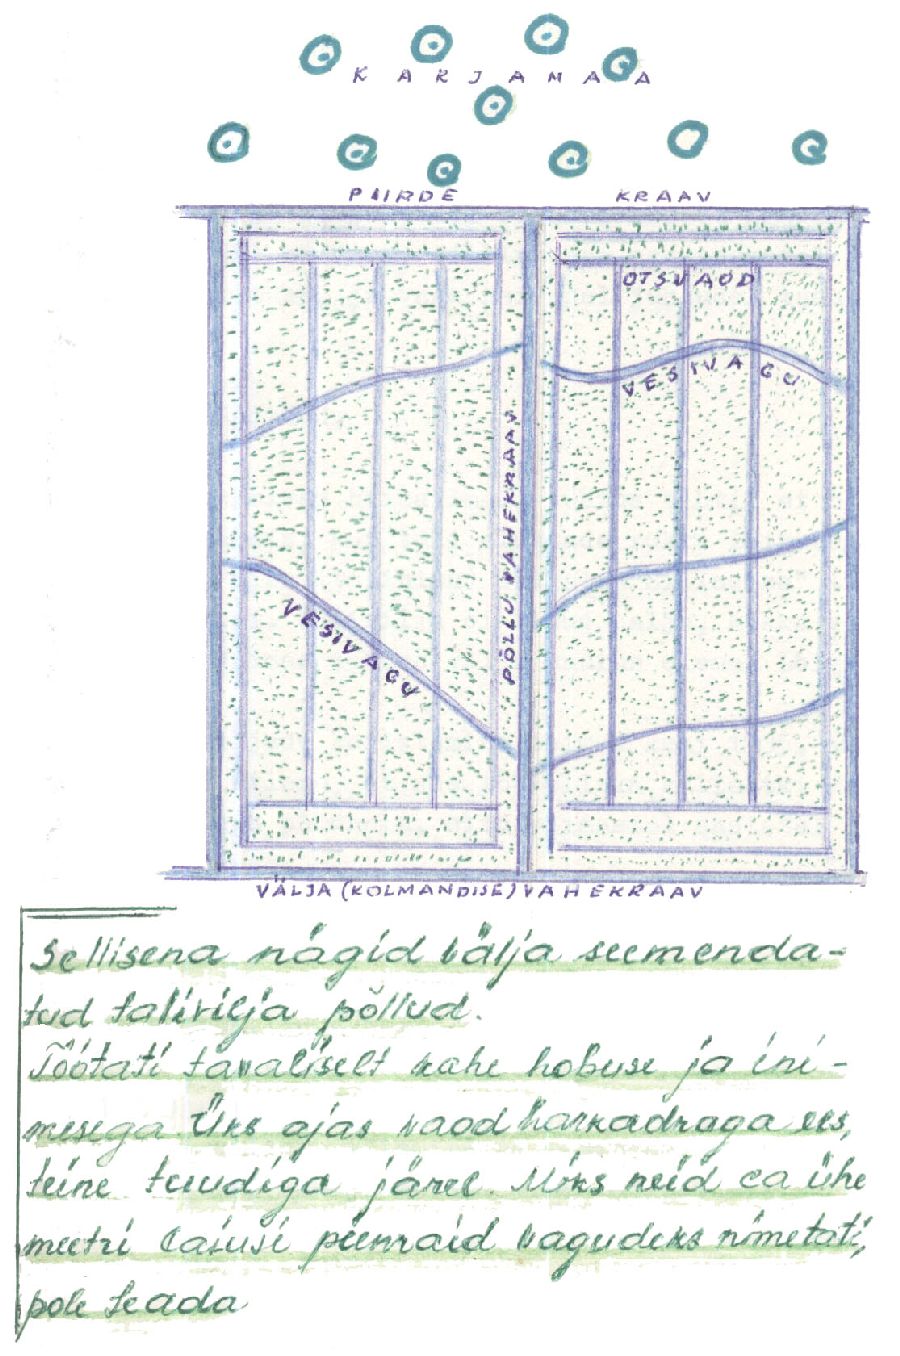 KARJAMAA
PIIRDE KRAAV
OTSVAOD
VESIVAGU
PÕLLU VAHEKRAAV
VESIVAGU
VÄLJA (KOLMANDISE) VAHEKRAAV
Sellisena nägid välja seemenda-
tud talivilja põllud.
Töötati tavaliselt kahe hobuse ja ini-
mesega Üks ajas vaod harkadraga ees,
teine tuudiga järel. Miks neid ca ühe
meetri laiusi peenraid vagudeks nimetati,
pole teada